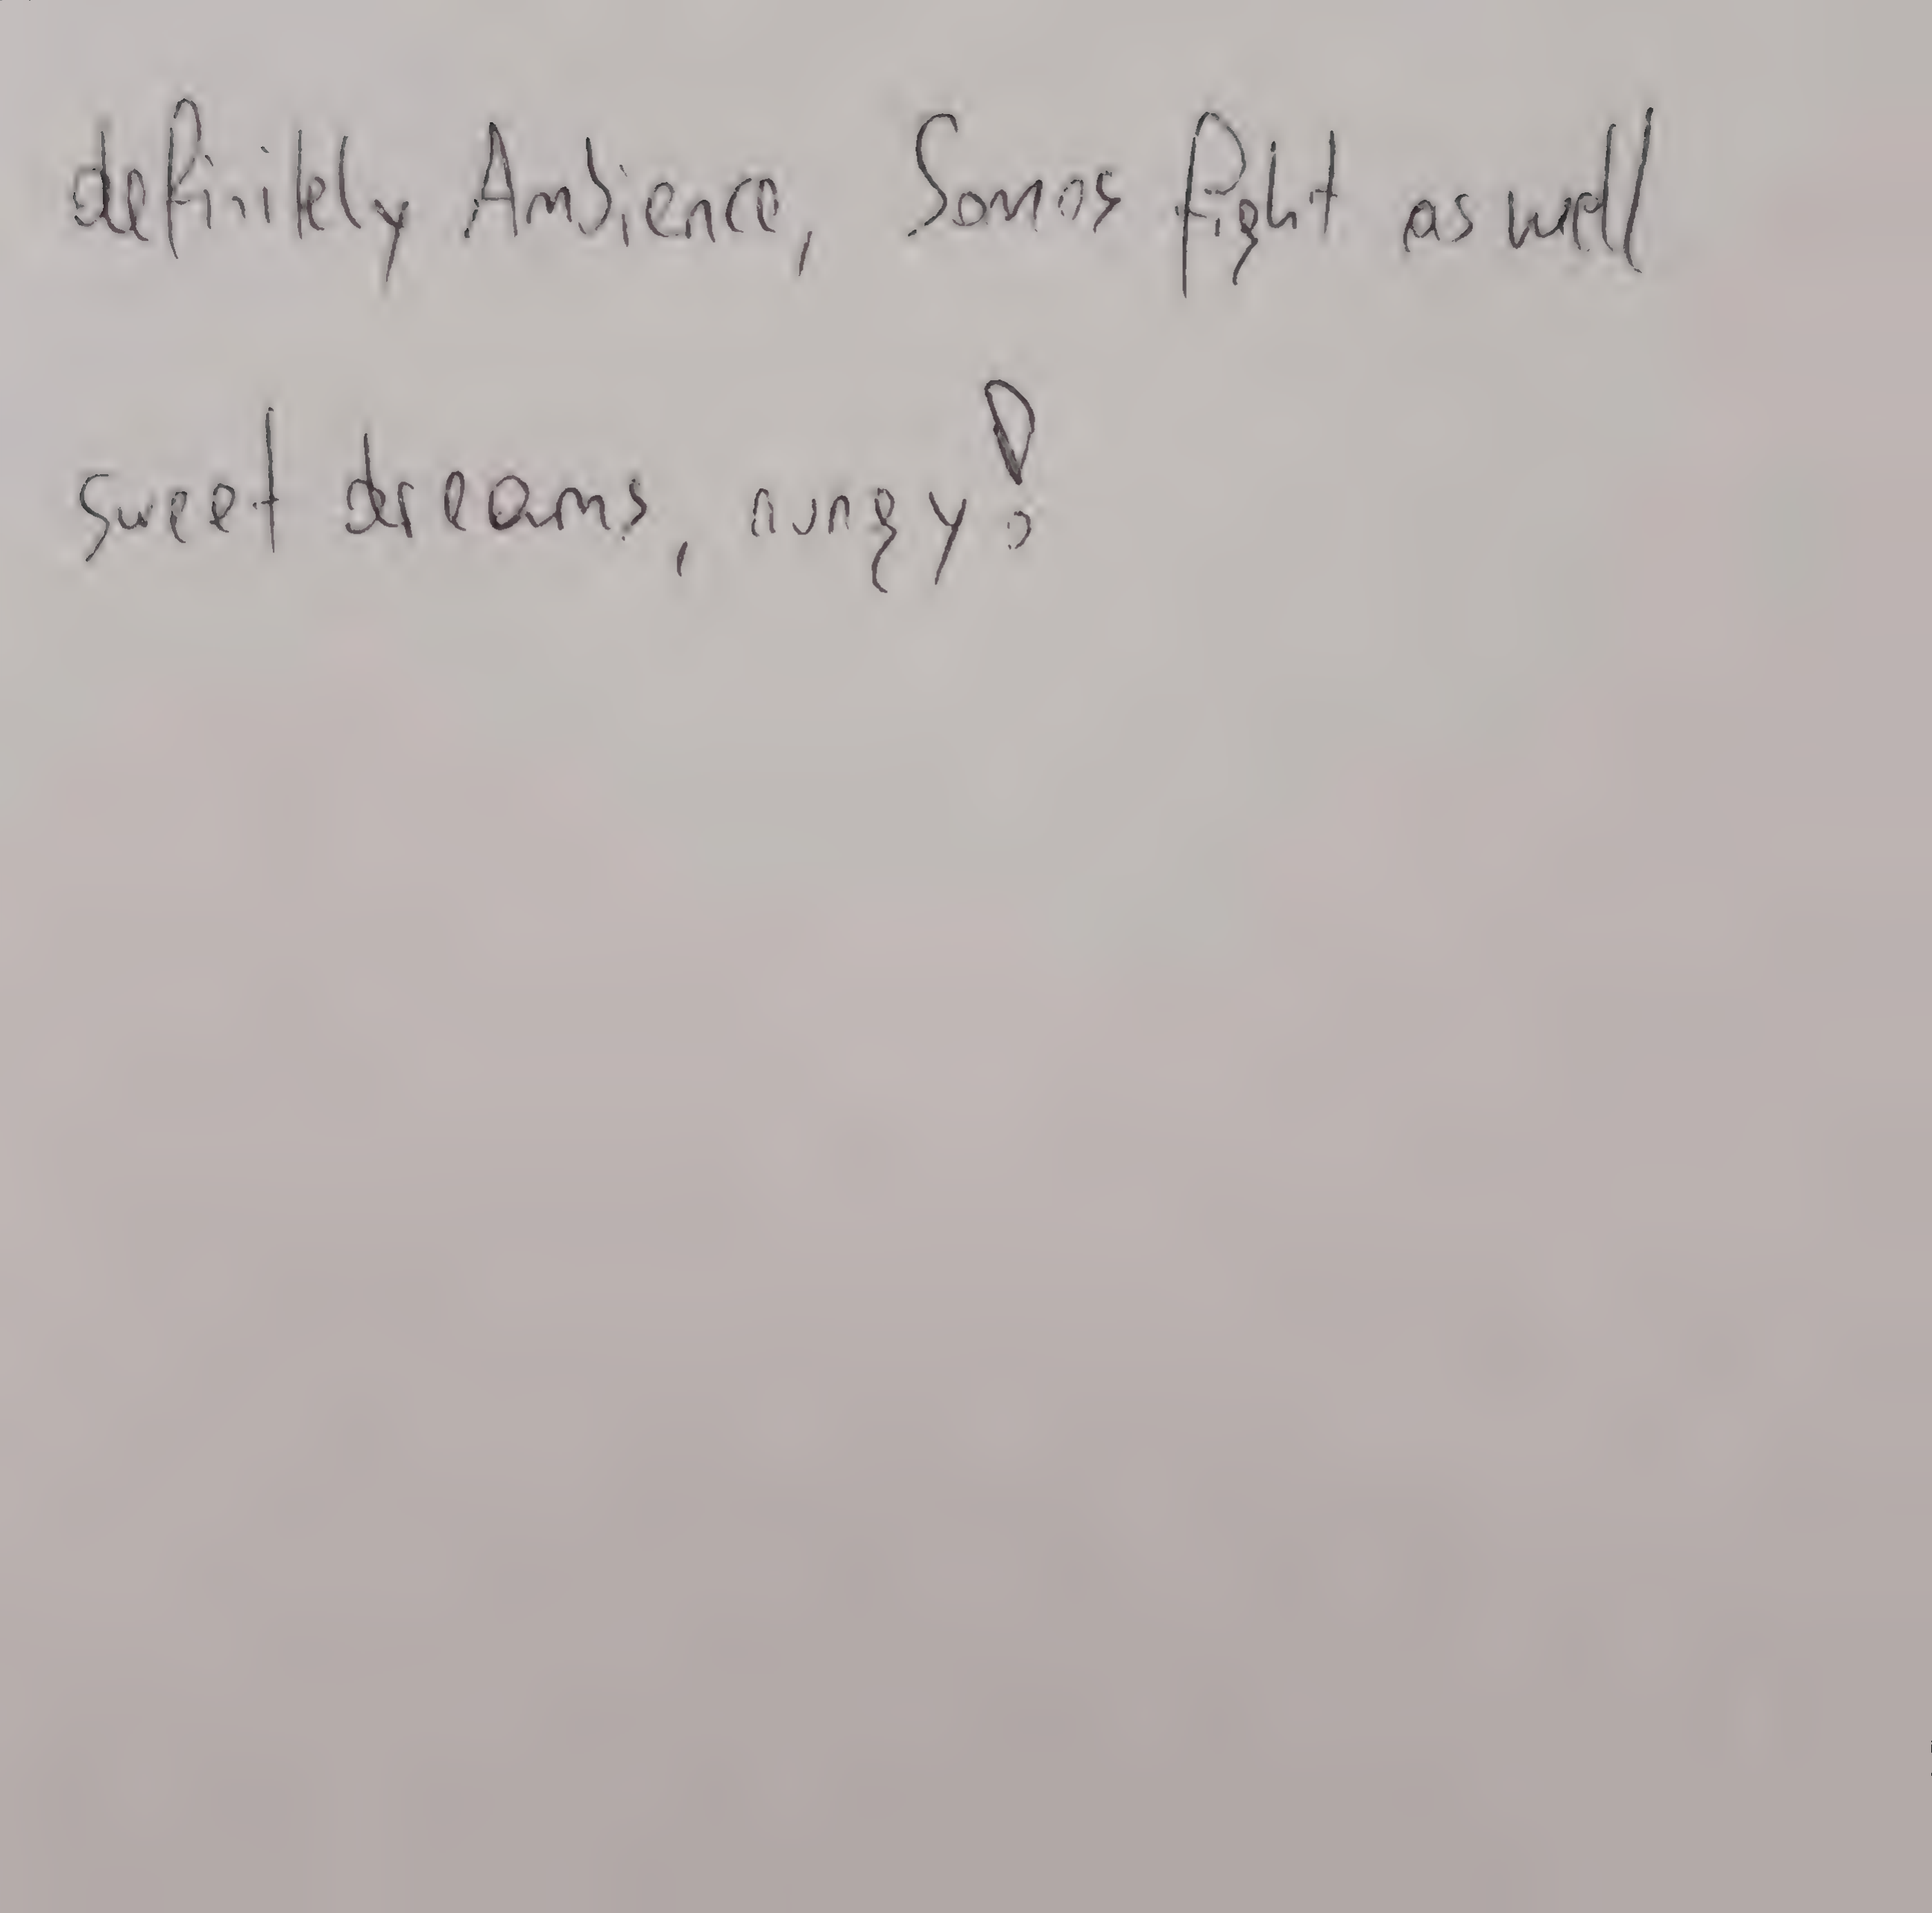 definitely Ambience, Somos fight as well
sweet dreams, nungy!